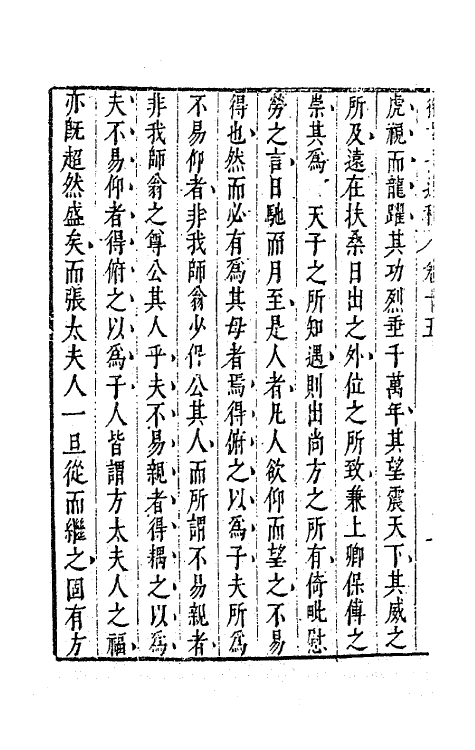 虎視而龍躍其功烈垂千萬年其望震天下其威之
所及遠在扶桑日出之外位之所致兼上卿保傅之
崇其為　天子之所知遇則出尚方之所有倚毗慰
勞之言日馳而月至是人者凡人欲仰而望之不易
得也然而必有為其母者焉得俯之以為子夫所為
不易仰者非我師翁少保公其人而所謂不易親者
非我師翁之尊公其人乎夫不易親者得耦之以為
夫不易仰者得俯之以為子人皆謂方太夫人之福
亦旣超然盛矣而張太夫人一旦從而繼之固有方